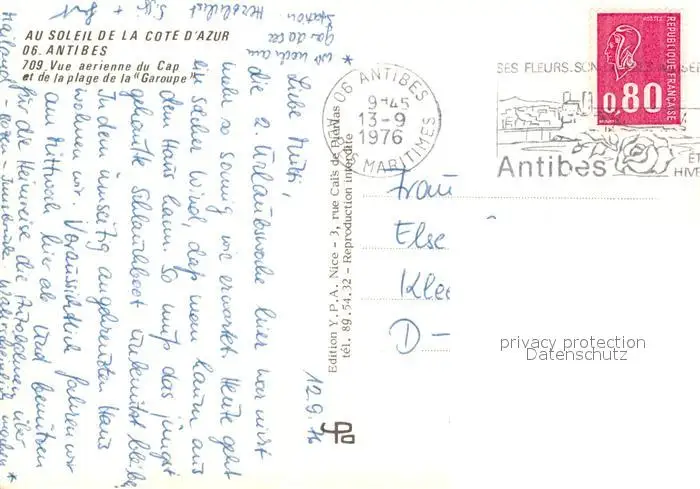 AU SOLEIL DE LA COTE D'AZUR
06. ANTIBES
709 Vue aerienne du Cap
et de la plage de la "Garoupe"
12.9.76
Liebe Mutti,
die 2. Urlaubswoche hier war nicht
mehr so sonnig wie erwartet. Heute geht
ein solcher Wind, daß man kaum aus
dem Haus kann. So muß das jüngst
gekaufte Schlauchboot unbenutzt bleiben
In dem umseitig angekreuzten Haus
wohnen wir. Voraussichtlich fahren wir
am Mittwoch hier ab und benutzen
für die Heimreise die Autobahnen über
Mailand - Bozen - Innsbruck. Wahrscheinlich machen *
* wir noch am
Station.
Herzlichst
Edition Y.P.A. Nice - 3, rue Cais de Pierlas
tél. 89.54.32 - Reproduction interdite
06 ANTIBES
9-45
13-9
1976
MARITIMES
SES FLEURS.SON
Antibes
ET
HIVE
POSTES
REPUBLIQUE FRANÇAISE
0,80
Frau
Else
Klee
D-
privacy protection
Datenschutz